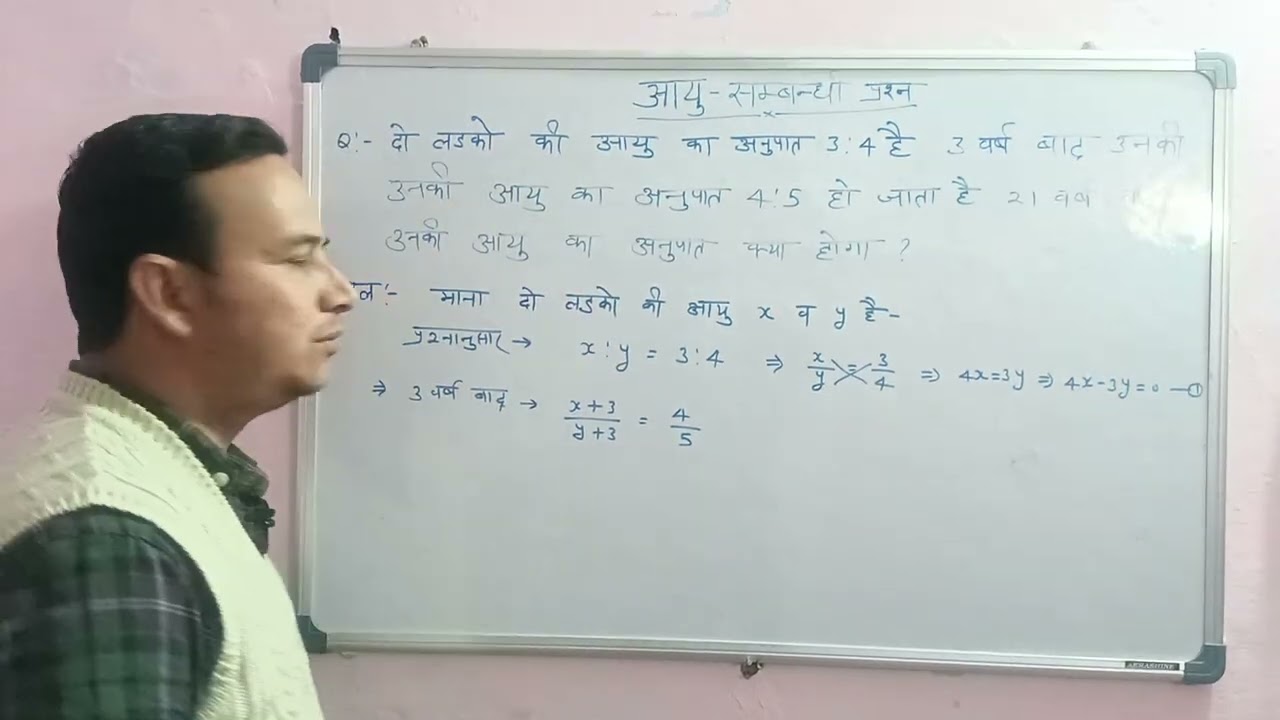 आयु - सम्बन्धी प्रश्न
Q:- दो लडको की आयु का अनुपात 3:4 है 3 वर्ष बाद उनकी
उनकी आयु का अनुपात 4:5 हो जाता है 21 वर्ष
उनकी आयु का अनुपात क्या होगा ?
माना दो लडको की आयु x व y है-
प्रश्नानुसार → x:y = 3:4 ⇒ x/y = 3/4 ⇒ 4x=3y ⇒ 4x-3y=0 —①
⇒ 3 वर्ष बाद → x+3/y+3 = 4/5
AERASHINE